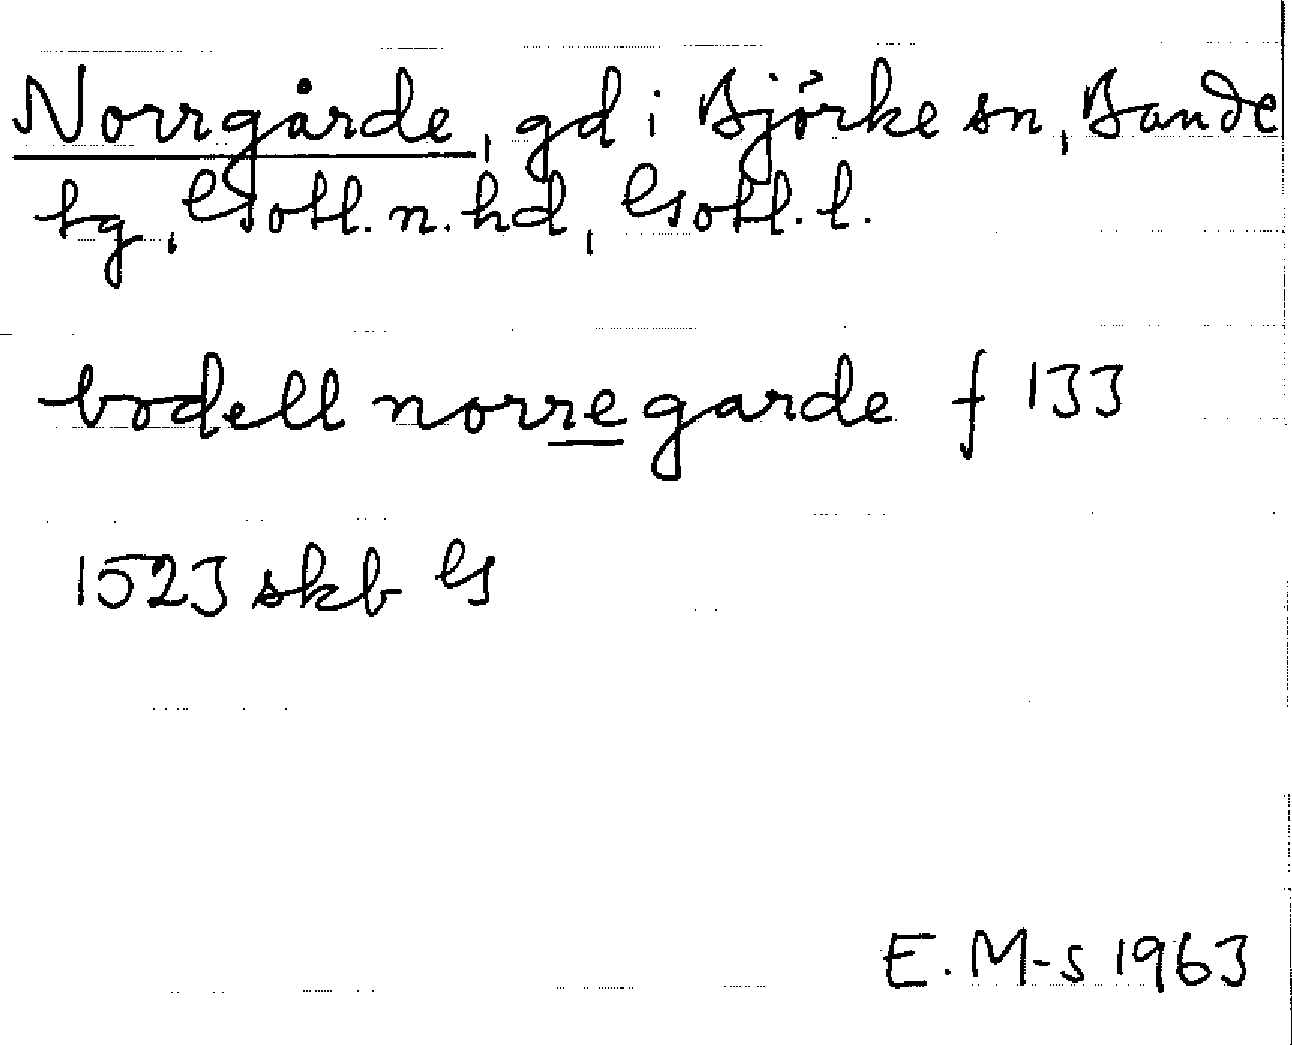 Norrgårde, gd i Björke sn, Bande
tg, Gotl. n. hd, Gotl. l.
bodell norregarde f 133
1523 skb G
E. M-s 1963